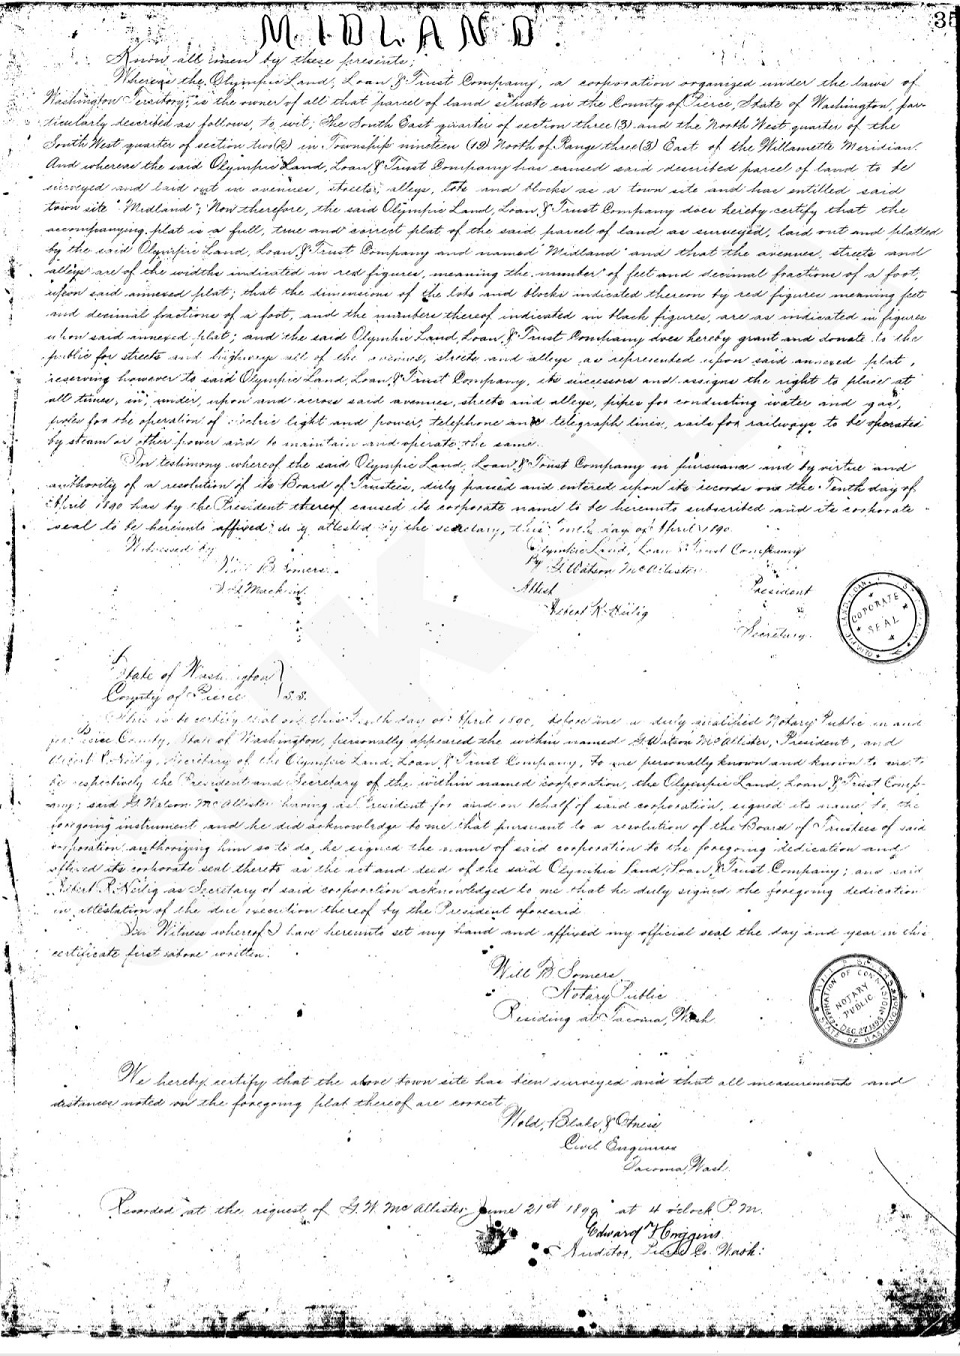 35
MIDLAND.
Know all men by these presents;
Whereas the Olympic Land, Loan, & Trust Company, a corporation organized under the laws of
Washington Territory, is the owner of all that parcel of land situate in the County of Pierce, State of Washington, par-
ticularly described as follows, to wit; The South East quarter of section three (3) and the North West quarter of the
South West quarter of section two (2) in Township nineteen (19) North of Range three (3) East of the Willamette Meridian.
And whereas the said Olympic Land, Loan, & Trust Company has caused said described parcel of land to be
surveyed and laid out in avenues, streets, alleys, lots and blocks as a town site and has entitled said
town site "Midland"; Now therefore, the said Olympic Land, Loan, & Trust Company does hereby certify that the
accompanying plat is a full, true and correct plat of the said parcel of land as surveyed, laid out and platted
by the said Olympic Land, Loan, & Trust Company and named "Midland" and that the avenues, streets and
alleys are of the widths indicated in red figures, meaning the number of feet and decimal fractions of a foot,
upon said annexed plat; that the dimensions of the lots and blocks indicated thereon by red figures meaning feet
and decimil fractions of a foot, and the numbers thereof indicated in black figures, are as indicated in figures
upon said annexed plat; and the said Olympic Land, Loan, & Trust Company does hereby grant and donate to the
public for streets and highways all of the avenues, streets and alleys as represented upon said annexed plat,
reserving however to said Olympic Land, Loan, & Trust Company, its successors and assigns the right to place at
all times, in, under, upon and across said avenues, streets and alleys, pipes for conducting water and gas,
poles for the operation of electric light and power, telephone and telegraph lines, rails for railways to be operated
by steam or other power and to maintain and operate the same.
In testimony whereof the said Olympic Land, Loan, & Trust Company in pursuance and by virtue and
authority of a resolution of its Board of Trustees, duly passed and entered upon its records on the Tenth day of
April 1890 has by the President thereof caused its corporate name to be hereunto subscribed and its corporate
seal to be hereunto affixed as is attested by the secretary, this tenth day of April 1890.
Witnessed by
Olympic Land, Loan & Trust Company
Will B. Somers.
By G. Watson McAllister
President
Attest
Robert R. Heilig
Secretary.
COPORATE
SEAL
State of Washington
County of Pierce
S.S.
This is to certify that on this Tenth day of April 1890, before me a duly qualified Notary Public in and
for Pierce County, State of Washington, personally appeared the within named G. Watson McAllister, President, and
Robert R. Heilig, Secretary of the Olympic Land, Loan, & Trust Company, to me personally known and known to me to
be respectively the President and Secretary of the within named corporation, the Olympic Land, Loan, & Trust Comp-
any; said G. Watson McAllister having as President for and on behalf of said corporation, signed its name to the
foregoing instrument and he did acknowledge to me that pursuant to a resolution of the Board of Trustees of said
corporation authorizing him so to do, he signed the name of said corporation to the foregoing dedication and
affixed its corporate seal thereto as the act and deed of the said Olympic Land Loan, & Trust Company; and said
Robert R. Heilig as Secretary of said corporation acknowledged to me that he duly signed the foregoing dedication
in attestation of the due execution thereof by the President aforesaid.
In Witness whereof I have hereunto set my hand and affixed my official seal the day and year in this
certificate first above written.
Will B. Somers
Notary Public
Residing at Tacoma, Wash
NOTARY
PUBLIC
We hereby certify that the above town site has been surveyed and that all measurements and
distances noted on the foregoing plat thereof are correct
Wold, Blake, &
Civil Engineers
Tacoma, Wash.
Recorded at the request of G. W. McAllister June 21st 1890 at 4 o'clock P.M.
Edward Huggins
Auditor, Pierce Co. Wash: